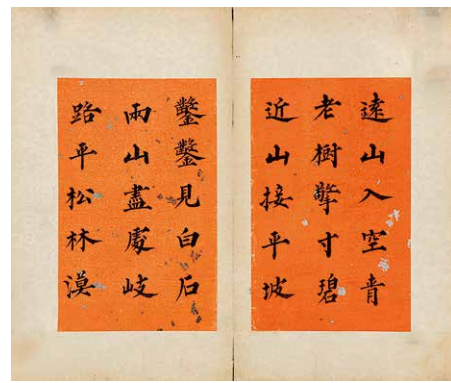 遠山入空青
老樹擎寸碧
近山接平坡
鑿鑿見白石
兩山盡處岐
路平松林漠